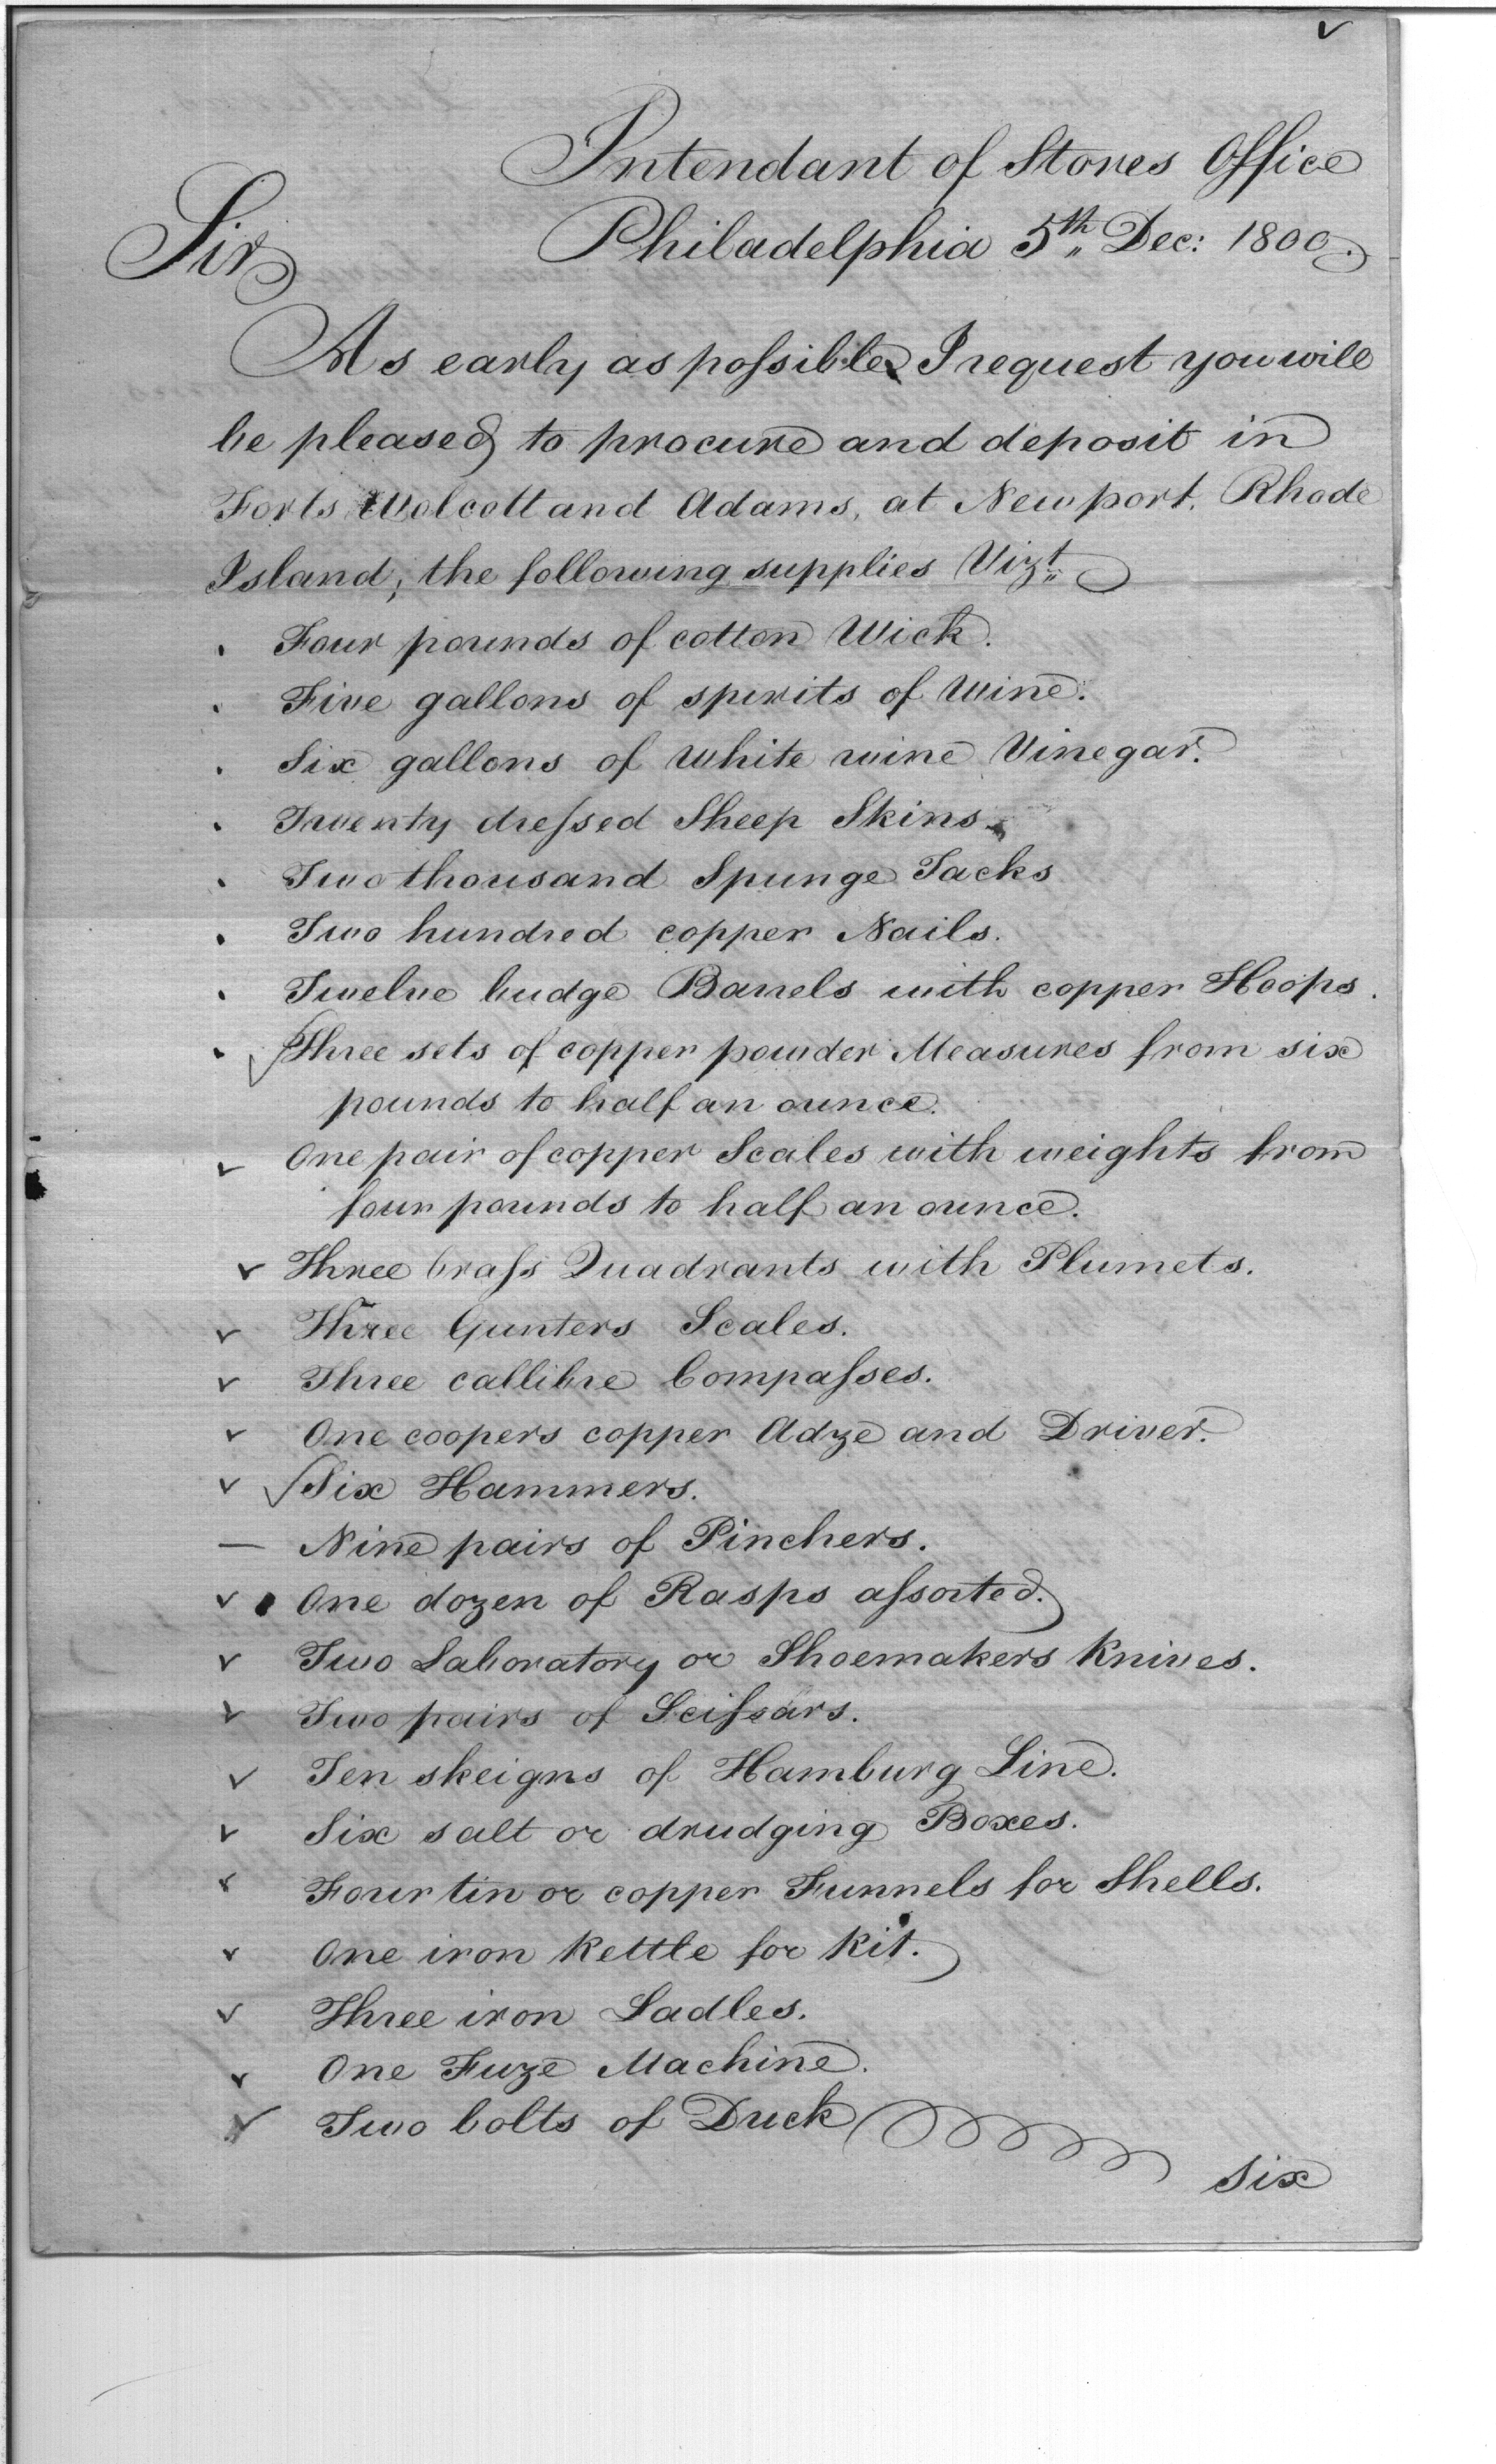 Intendant of Stores Office
Sir
Philadelphia 5th Dec: 1800.
As early as possible I request you will
be pleased to procure and deposit in
Forts Wolcott and Adams, at Newport, Rhode
Island, the following supplies Vizt
Four pounds of cotton Wick.
Five gallons of spirits of Wine.
Six gallons of white wine Vinegar.
Twenty dressed Sheep Skins.
Two thousand Spunge Tacks
Two hundred copper Nails.
Twelve budge Barrels with copper Hoops.
Three sets of copper powder Measures from six
pounds to half an ounce.
One pair of copper Scales with weights from
four pounds to half an ounce.
Three brass Quadrants with Plumets.
Three Gunters Scales.
Three callibre Compasses.
One coopers copper Adze and Driver.
Six Hammers.
Nine pairs of Pinchers.
One dozen of Rasps assorted.
Two Laboratory or Shoemakers Knives.
Two pairs of Scissars.
Ten skeigns of Hamburg Line.
Six salt or drudging Boxes.
Four tin or copper Funnels for Shells.
One iron Kettle for Kit.
Three iron Ladles.
One Fuze Machine.
Two bolts of Duck
Six